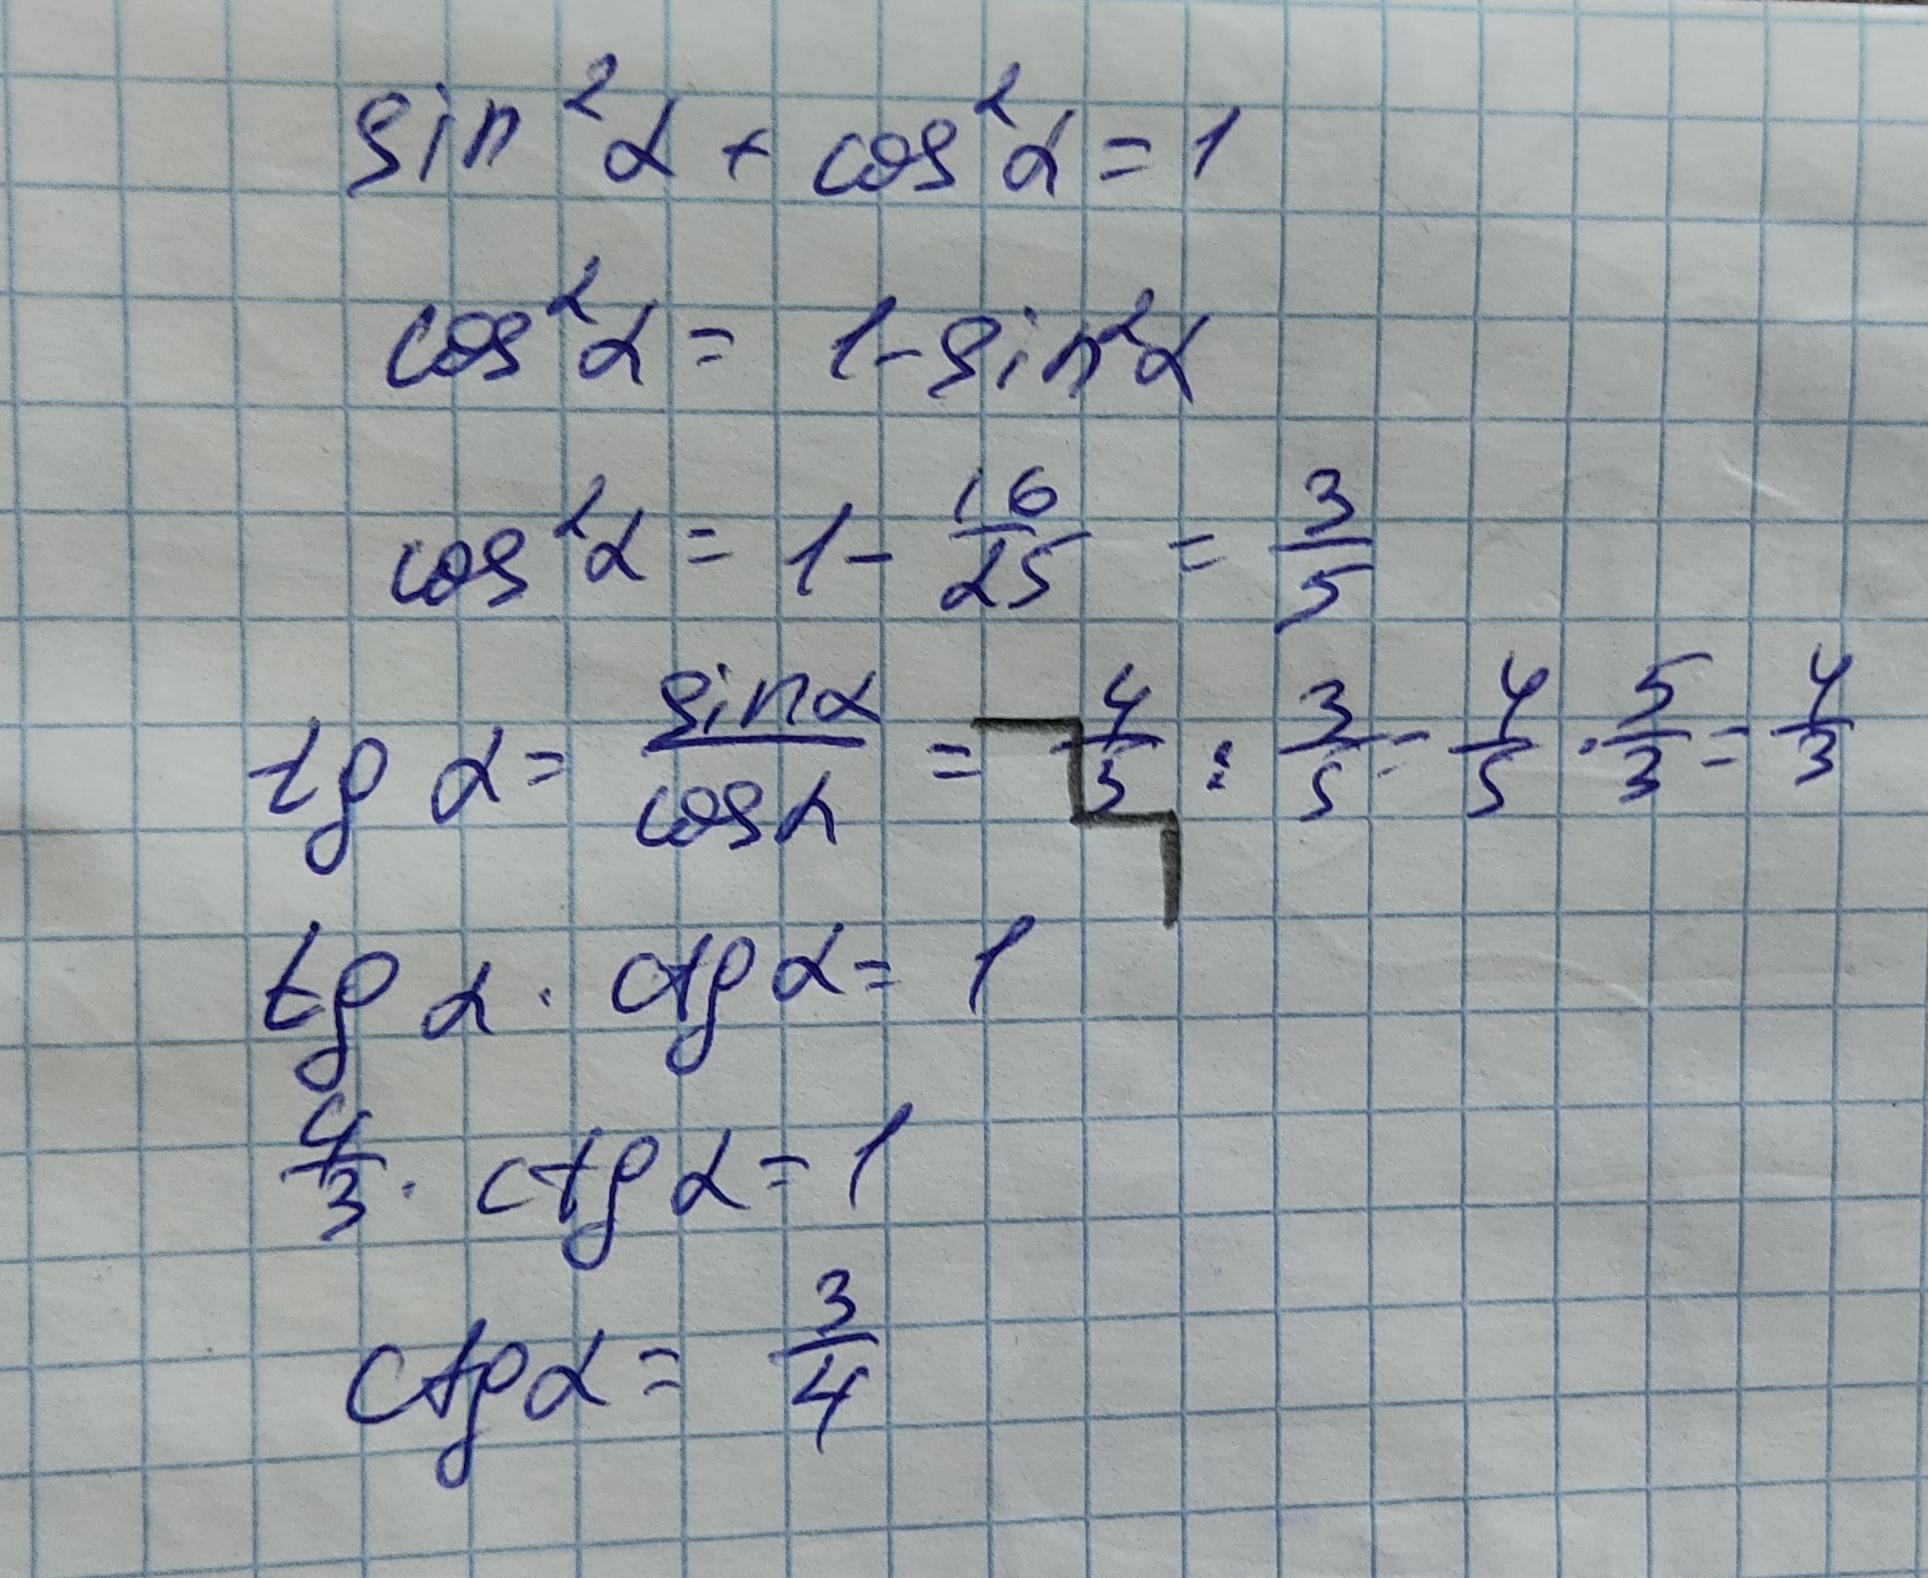 sin²α + cos²α = 1
cos²α = 1 - sin²α
cos²α = 1 - 16/25 = 3/5
tg α = sinα/cosα = 4/5 : 3/5 = 4/5 · 5/3 = 4/3
tg α · ctg α = 1
4/3 · ctg α = 1
ctg α = 3/4